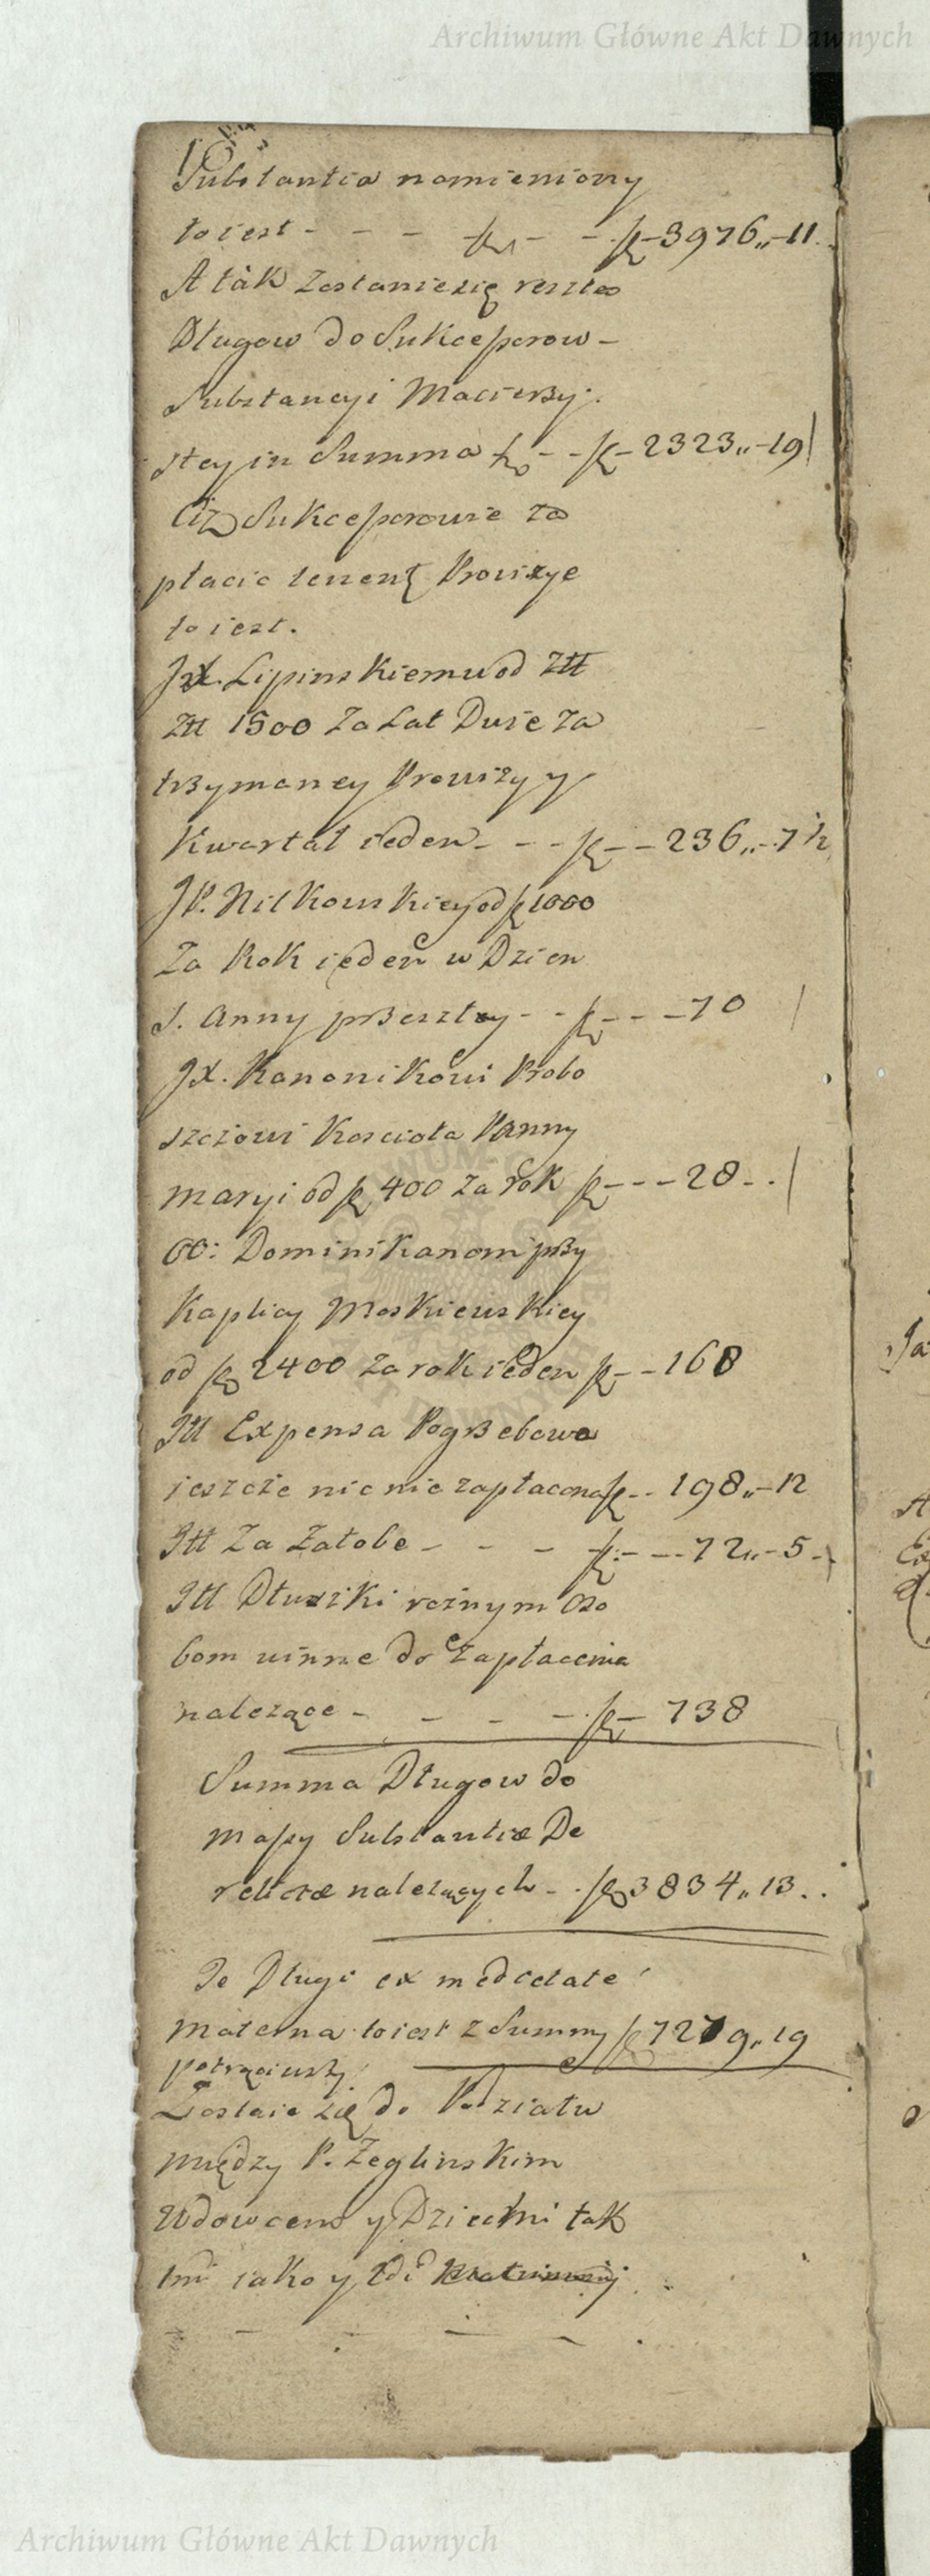 Archiwum Główne Akt Dawnych
Substantia namieniony
to iest - - - - - fl 3976,,-11.
A ták zostanie się reszta
Długow do Sukcessorow -
Substancyi Macierzy:
stey in Summa - - fl - 2323,,-19
Ciż Sukcessorowie za
płacic tenentʒ Prowizye
to iest.
JX. Lipinskiemu od Złł
Złł 1500 Za Lat Dwie Za
trzymaney Prowizyy y
Kwartał ieden - - - fl - - 236,,-7½
JP. Nitkowskiey od fl 1000
Za Rok ieden w Dzien
S. Anny przeszły - - fl - - - 70
JX. Kanonikowi Probo
szczowi Koscioła Panny
Maryi od fl 400 za rok fl - - - 28 - .
OO: Dominikanom przy
Kaplicy Moskiewskiey
od fl 2400 za rok ieden fl - - 168
Itt Expensa Pogrzebowa
ieszcze nie nie zapłacona fl - - 198,,-12
Itt Za Załobe - - - fl - - - 72,,-5 -
Itt Dłużki roznym Oso
bom winne do Zapłacenia
nalezące - - - - fl - 738
Summa Długow do
Massy Substantiæ De
relictæ nalezących - . fl 3834,,13..
Te Długi ex medietate
Materna to iest z Summy fl 7279,,19
potrąciwszy
Zostaie się do Podziału
między P. Zeglinskim
Wdowcem y Dziecmi tak
1mi iako y 2di
Archiwum Główne Akt Dawnych